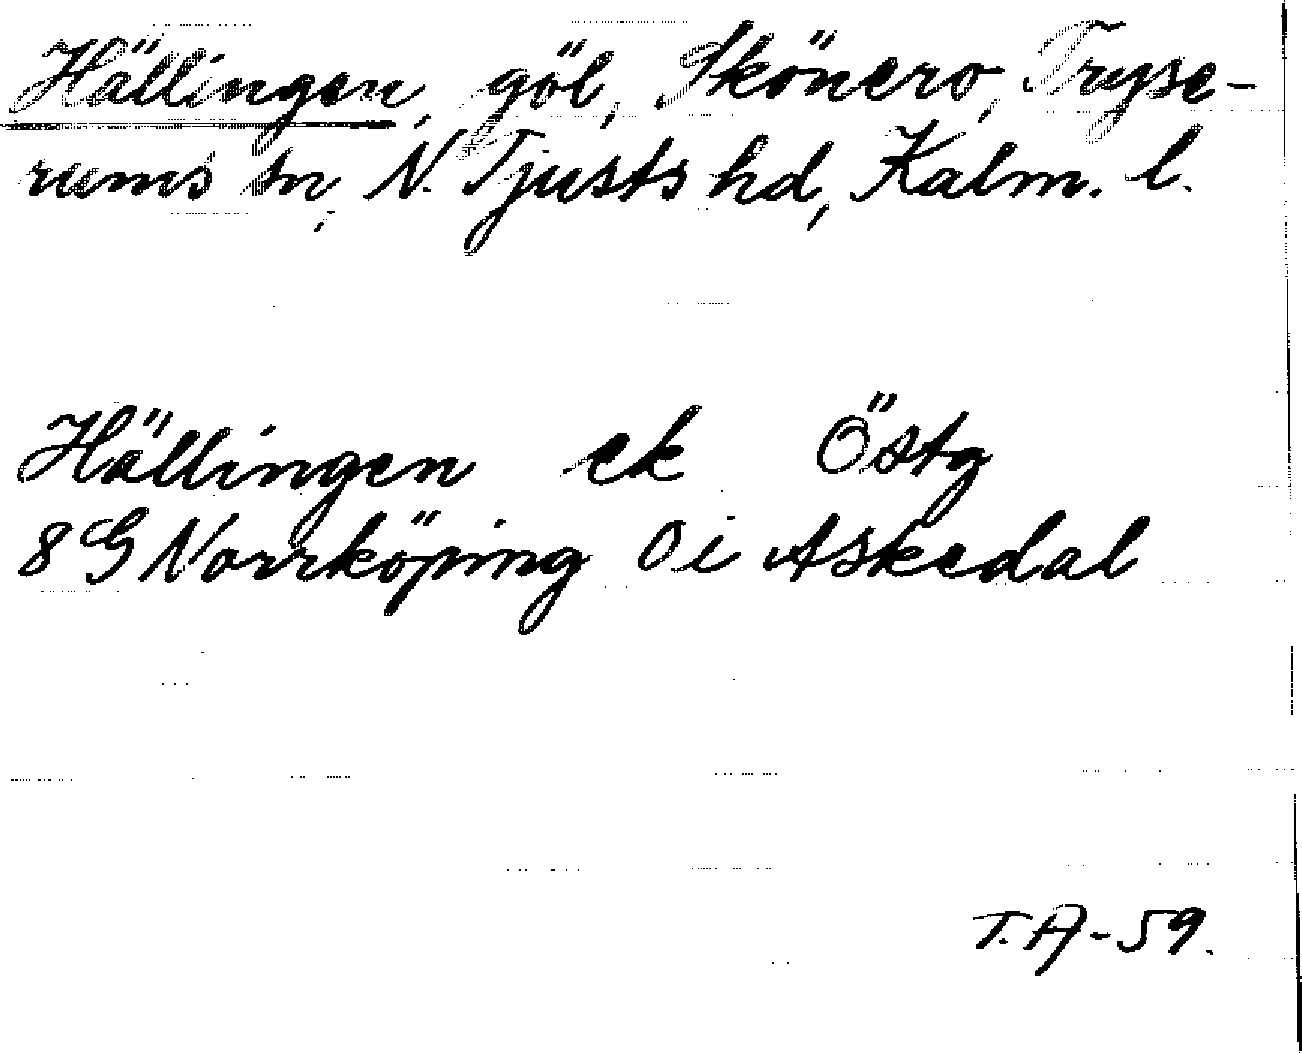 Hällingen, göl, Skönero, Tryse-
rums sn, N. Tjusts hd, Kalm. l.
Hällingen ek Östg
8 G Norrköping 0 i Askedal
T.A-59.